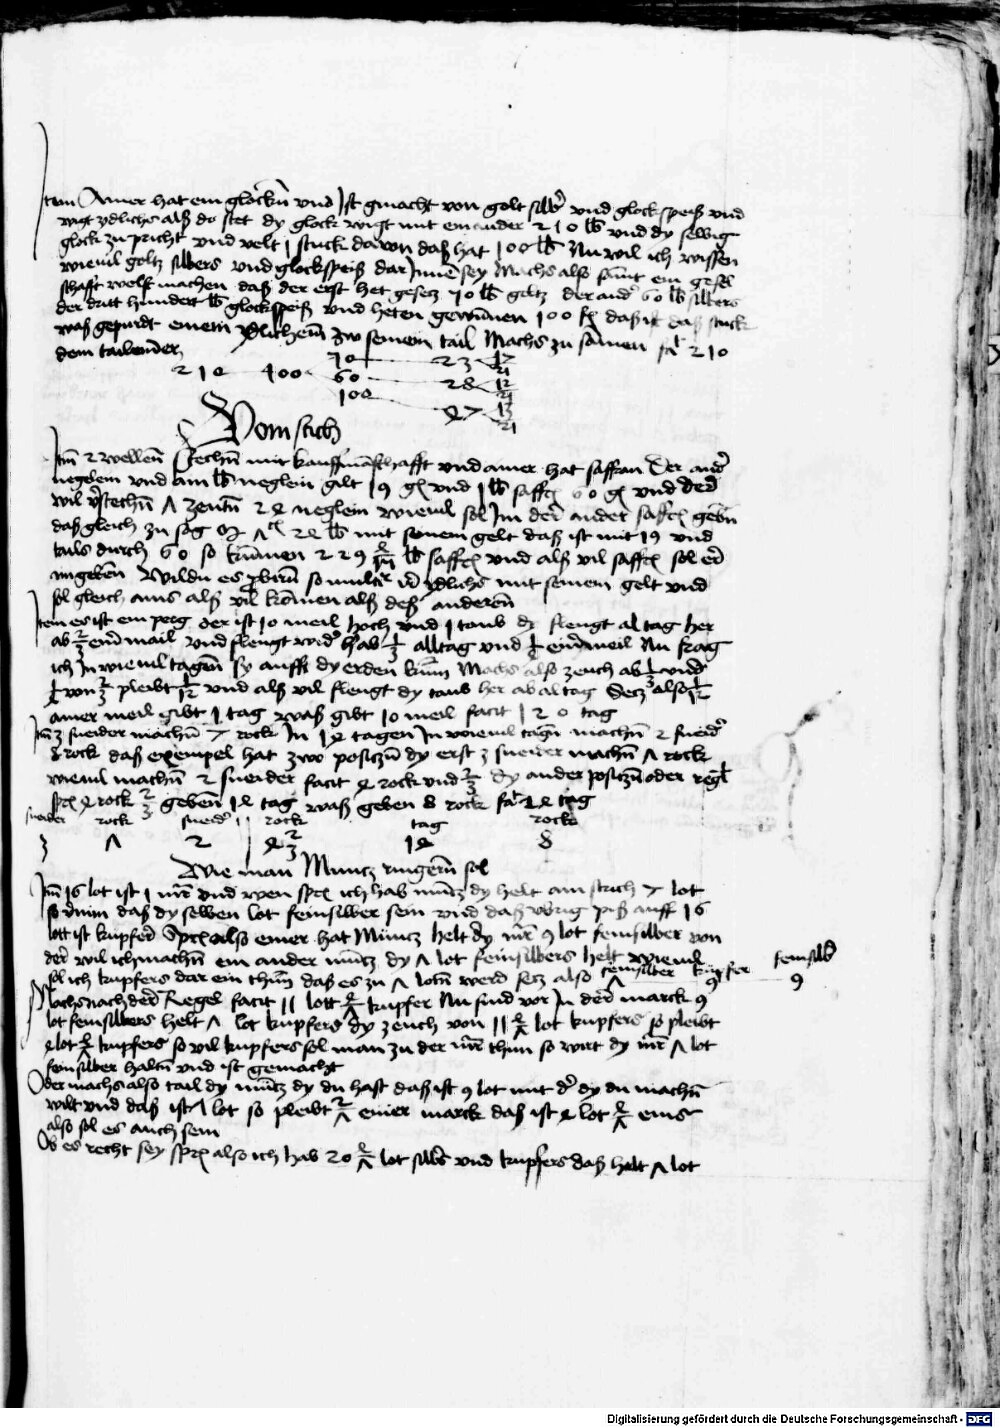 Item Ainer hat ein glocken und Ist gmacht von golt silber und glockspeiß und
wigt ydlichs alß do stet dy glock wigt mit einander 210 lb und dy selbig
glock zu pricht und velt 1 stuck davon daß hat 100 lb Nu wil ich wissen
wievil goltz silbers und glockspeiß dar Inne sey Machs also samt ein gesel
schafft wolst machen daß der erst het gesetz 70 lb goltz der ander 60 lb silbers
der dritt hundert lb glockspeiß und heten gewunnen 100 daß ist daß stuck
waß gepurdt einem Ydlichem zw seinem tail Machs zu samen 210
dem tailende
70 23 17/21
210 100 60 28 12/21
100 47 13/21
Vom stich
Item 2 wellenn stechn mit kauffmanschafft und ainer hat saffran der ander
negelein und ain lb neglein gilt 19 und 1 lb saff 60 und der
wil verstechn zentn 24 neglein wievil sol Im der ander saff gebn
daß gleich zu sag 24 lb mit seinem gelt daß ist mit 19 und
tails durch 60 so kumen 229 lb saff und alß vil saff sol er
umgeben Wildu es so ydlichs mit seinem gelt und
sol gleich auß alß vil komen alß deß anderen
Item es ist ein perg der ist 10 meil hoch und 1 taub dy flengt al tag her
ab 2/3 einer mail und flengt wider 1/3 alltag und 1/4 einer meil Nu frag
ich In wievil tagen sy auff dy erden kum Machs also zeuch ab 1/3 und
1/4 von 2/3 pleibt 1/12 und alß vil flengt dy taub her ab al tag Secz also 1/12
ainer meil gibt 1 tag waß gibt 10 meil facit 120 tag
Item 3 sneider machen 7 rock In 14 tagen In wievil tagn machn 2 sneider
8 rock daß exempel hat zwo posiczn dy erst 3 sneider machn 7 rock
wievil machn 2 sneider facit 4 rock und 2/3 dy ander posiczn oder regl
4 rock 2/3 geben 14 tag waß geben 8 rock 24 tag
sneider rock sneider rock tag rock
3 7 2 4 2/3 14 8
Wie man Muntz ringern sol
Item 16 lot ist 1 und wen ich hab dy helt am strich 7 lot
so daß dy selben lot feinsilber sein und daß ubrig piß auff 16
lott ist kupfer also einer hat Müntz helt dy 9 lot feinsilber von
der wil ich machn ein ander dy 7 lot feinsilbers helt wievil
sol ich kupfers dar ein thun daß es zu 7 lotn werd secz also feinsilber kupfer feinsilber
7 9 9
Machs nach der Regel facit 11 lott 4/7 kupfer Nu sind vor In der marck 9
lot feinsilbers helt 7 lot kupfers dy zeuch von 11 4/7 lot kupfers so pleibt
4 lot 4/7 kupfers so vil kupfers sol man zu der thun so wirt dy 7 lot
feinsilber haltn und ist gemacht
Oder machs also tail dy dy du hast daß ist 9 lot mit der dy du machn
wilt und daß ist 7 lot so pleibt 2/7 einer marck daß ist 4 lot 4/7 eins
also sol es auch sein
Ob es recht sey also ich hab 20 4/7 lot silber und kupfers daß helt 7 lot
Digitalisierung gefördert durch die Deutsche Forschungsgemeinschaft - DFG